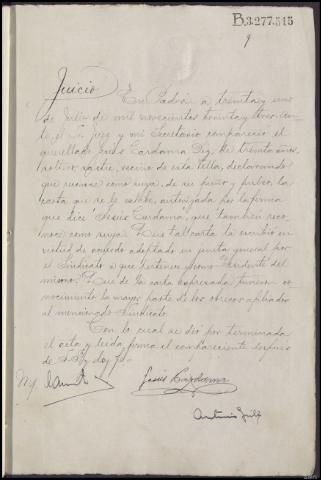 B.3.277.515
9
Juicio En Padrón a treinta y uno
de Julio de mil novecientos treinta y tres, an-
te el Sr. Juez y mi Secretario compareció el
querellado Jesús Cardama Rey, de treinta años,
soltero, sastre, vecino de esta villa, declarando
que reconoce como suya, de su puño y pulso, la
carta que se le exhibe, autorizada por la firma
que dice "Jesús Cardama", que también reco-
noce como suya. Que tal carta la escribió en
virtud de acuerdo adoptado en junta general por
el Sindicato a que pertenece y como Presidente del
mismo. Que de la carta expresada tuvieron co-
nocimiento la mayor parte de los obreros afiliados
al mencionado Sindicato.
Con lo cual se dió por terminada
el acta y leída firma el compareciente después
de S.Sª y doy fe.
Jesús Cardama
Antonio